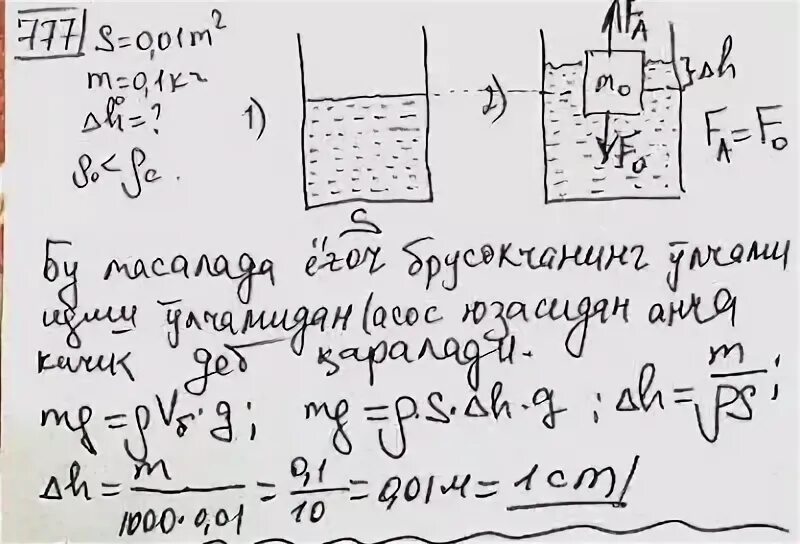 777 S=0,01m²
m₀=0,1кг
Δh=?
ρ₀<ρc.
1)
2)
F_A
m₀
F₀
}Δh
F_A=F₀
S
Бу масалада ёғоч брусокчанинг ўлчами
идиш ўлчамидан (асос юзасидан анча
кичик деб қаралади.
mg=ρVб·g; mg=ρ·S·Δh·g; Δh=m/ρS;
Δh=m/1000·0,01=0,1/10=0,01м=1cm/